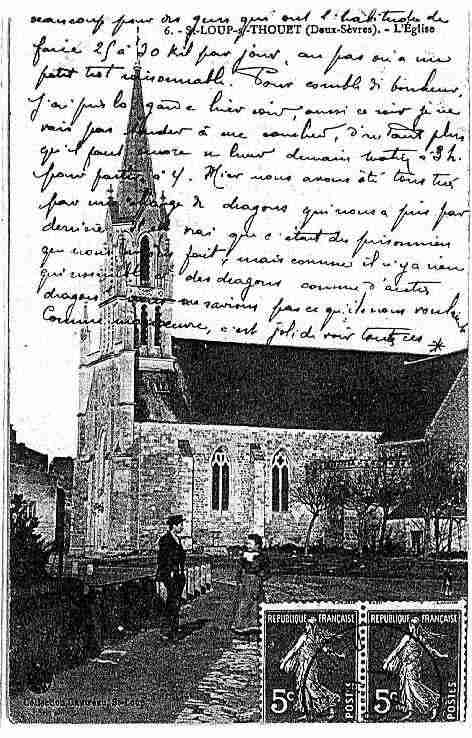 beaucoup pour des gens qui ont l'habitude de
6. - St-LOUP-s-THOUET (Deux-Sèvres). - L'Église
faire 25 à 30 kil par jour, au pas on a un
petit trot raisonnable. Pour comble de bonheur,
j'ai pris la garde hier soir, aussi ce soir je ne
vais pas tarder à me coucher, d'autant plus
qu'il faut encore se lever demain matin à 3 h.
pour partir à 4. Hier nous avons été tous tués
par une charge de dragons qui nous a pris par
derrière vrai que c'étaient des prisonniers
que nous fait, mais comme il n'y a rien
qui des dragons comme d'autres
dragons, ne savions pas ce qu'ils nous voulaient
Comme manoeuvre, c'est joli de voir toutes ces *
RÉPUBLIQUE FRANÇAISE
5c
POSTES
RÉPUBLIQUE FRANÇAISE
5c
POSTES
Collection St-Loup